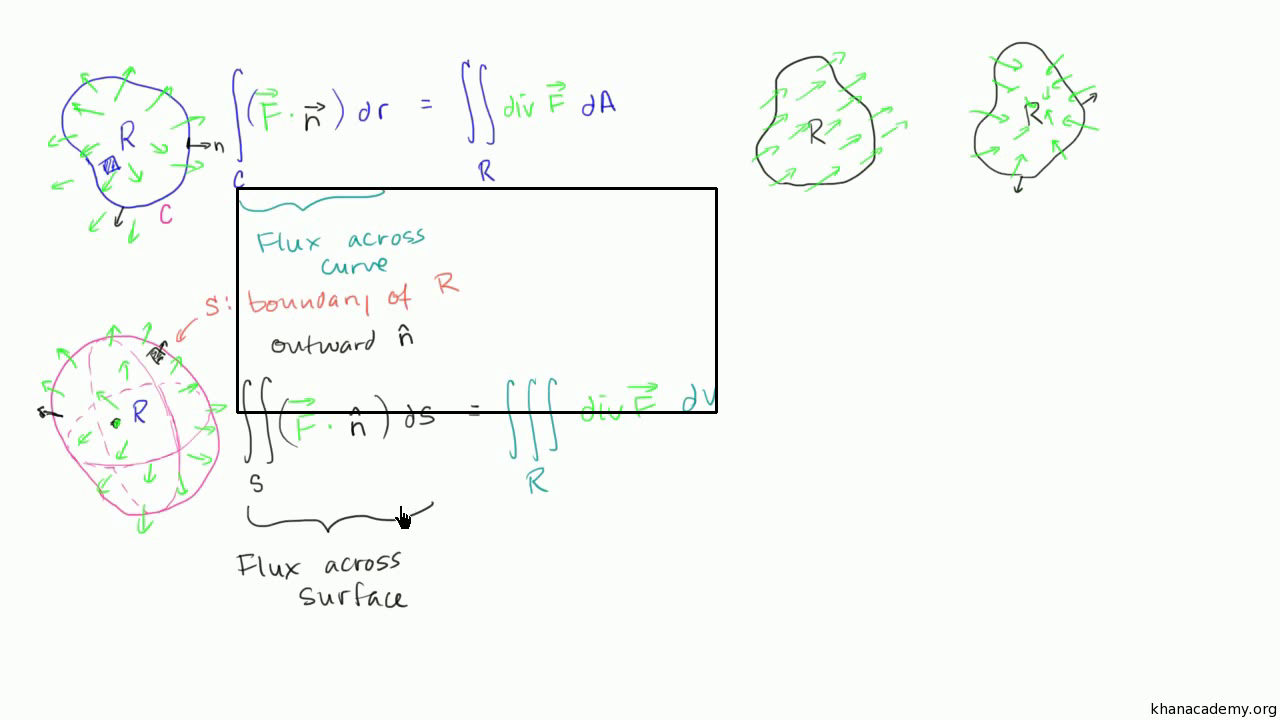 R
n
C
∫_C (F⃗ · n⃗) dr = ∬_R div F⃗ dA
Flux across
curve
S: boundary of R
outward n̂
R
∬_S (F⃗ · n̂) ds = ∭_R div F⃗ dV
Flux across
surface
R
R
khanacademy.org